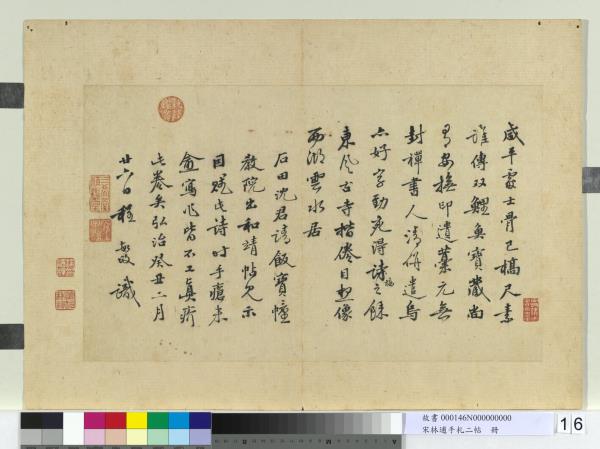 咸平處士骨已槁尺素
誰傳双鯉魚寶藏尚
有安撫印遺藁元無
封禪書人清併遣鳥
亦好字勁宛得詩之餘
東風古寺揩倦目想像
西湖雲水居
石田沈君請飯寶幢
教院出和靖帖見示
因賦此詩時手瘡未
愈寫皆不工真疥
此卷矣弘治癸丑二月
廿六日程敏識
故書 000146N000000000
宋林逋手札二帖 冊
16